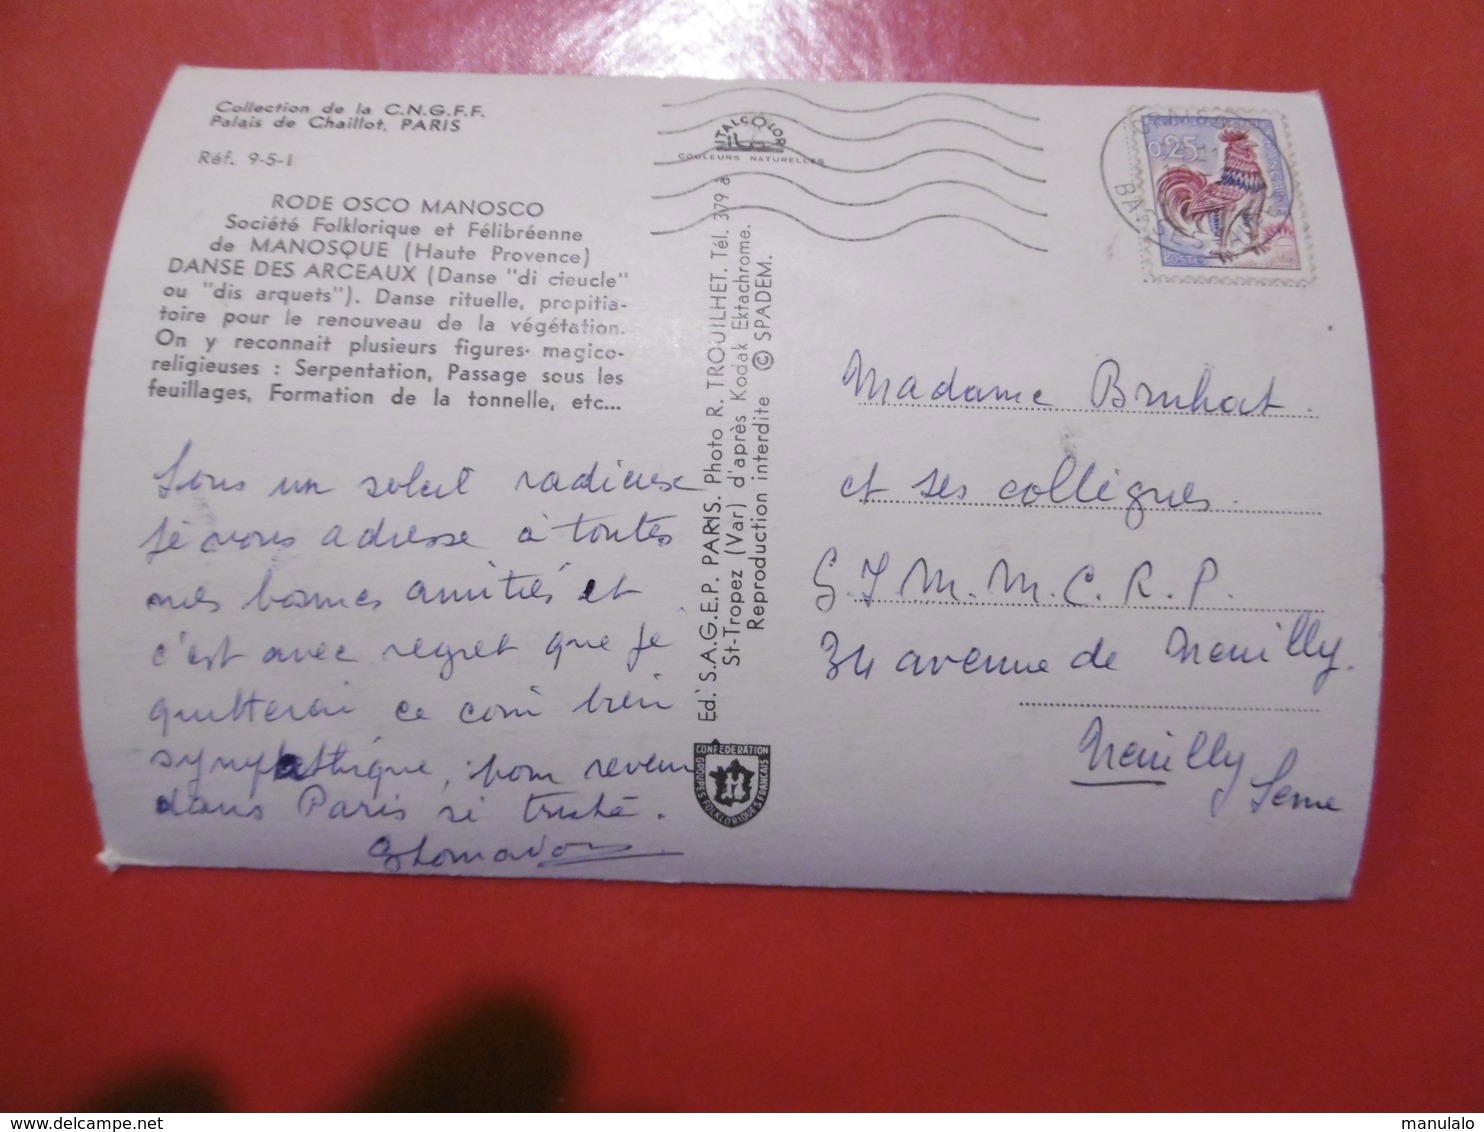 Collection de la C.N.G.F.F.
Palais de Chaillot, PARIS
Réf. 9-5-1
RODE OSCO MANOSCO
Société Folklorique et Félibréenne
de MANOSQUE (Haute Provence)
DANSE DES ARCEAUX (Danse "di cieucle"
ou "dis arquets"). Danse rituelle, propitia-
toire pour le renouveau de la végétation.
On y reconnait plusieurs figures magico-
religieuses : Serpentation, Passage sous les
feuillages, Formation de la tonnelle, etc...
Sous un soleil radieux
je vous adresse à toutes
mes bonnes amitiés et
c'est avec regret que je
quitterai ce coin bien
sympathique, pour revenir
dans Paris si triste.
ITALCOLOR
COULEURS NATURELLES
Ed. S.A.G.E.P. PARIS. Photo R. TROUILHET. Tél. 379 à
St-Tropez (Var) d'après Kodak Ektachrome.
Reproduction interdite © SPADEM.
CONFEDERATION
GROUPES FOLKLORIQUES FRANCAIS
0,25
POSTES
BASSES
Madame Bruhat.
et ses collègues.
S.I M.M.C.R.P.
34 avenue de Neuilly.
Neuilly
Seine
www.delcampe.net
manulalo